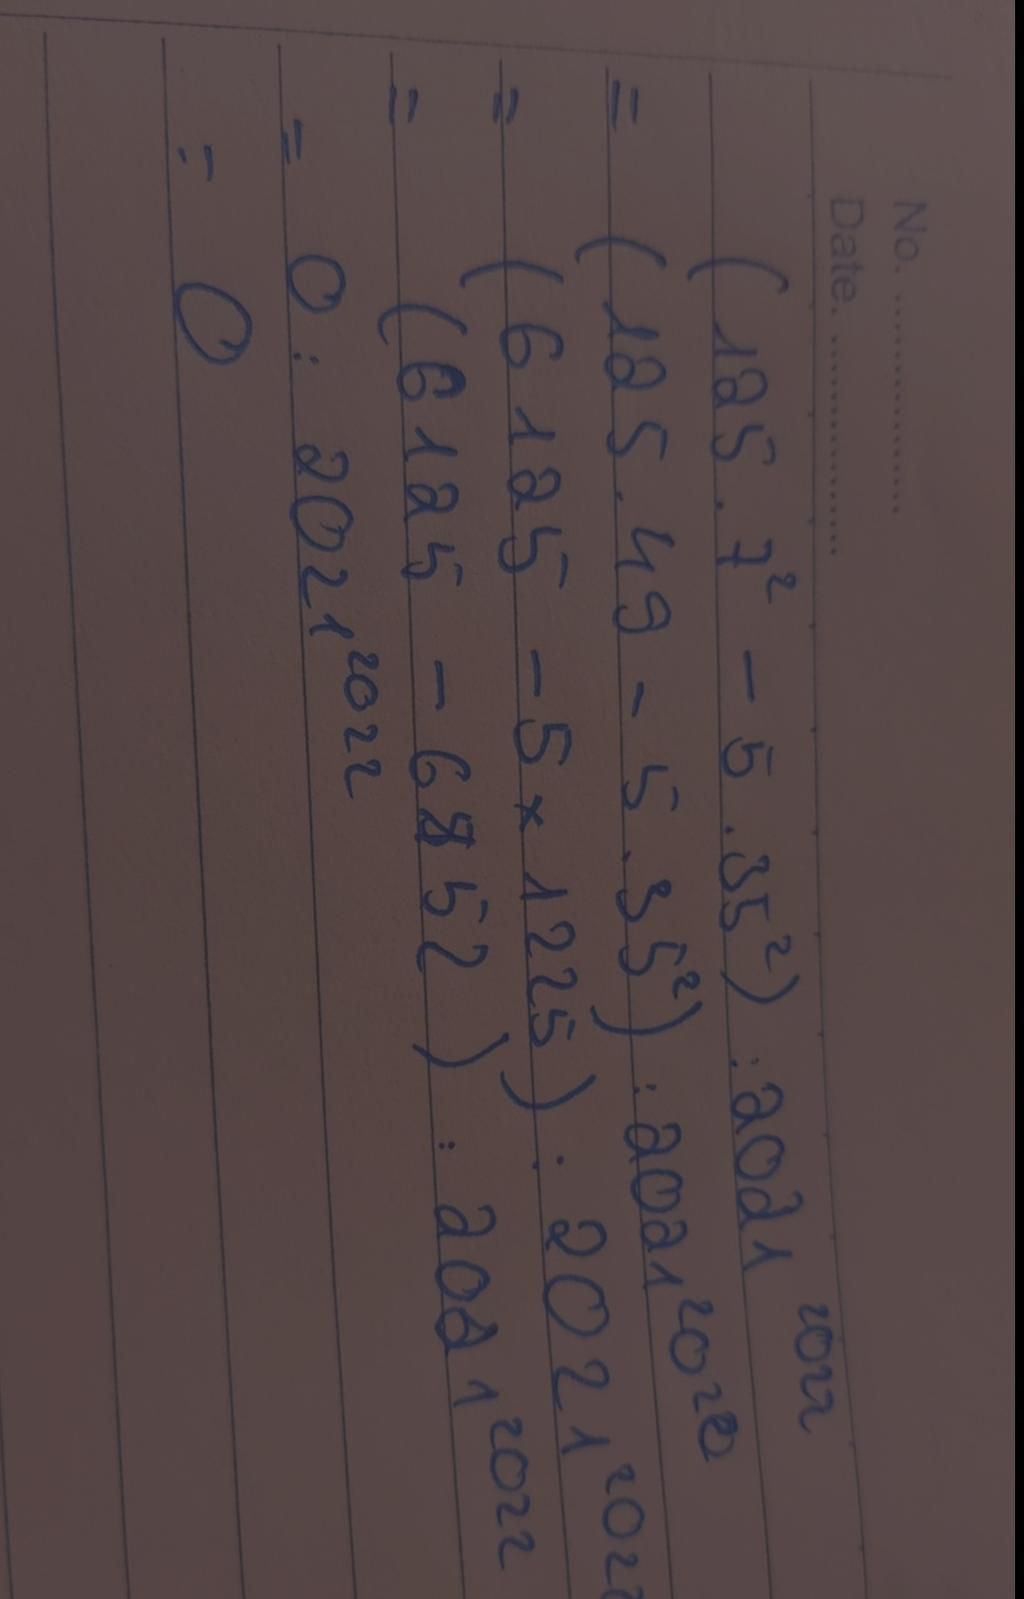 No. ..................
Date. ..................
(125.7² - 5.35²) : 2021²⁰²²
= (125.49 - 5.35²) : 2021²⁰²²
= (6125 - 5×1225) : 2021²⁰²²
= (6125 - ) : 2021²⁰²²
= 0 : 2021²⁰²²
= 0